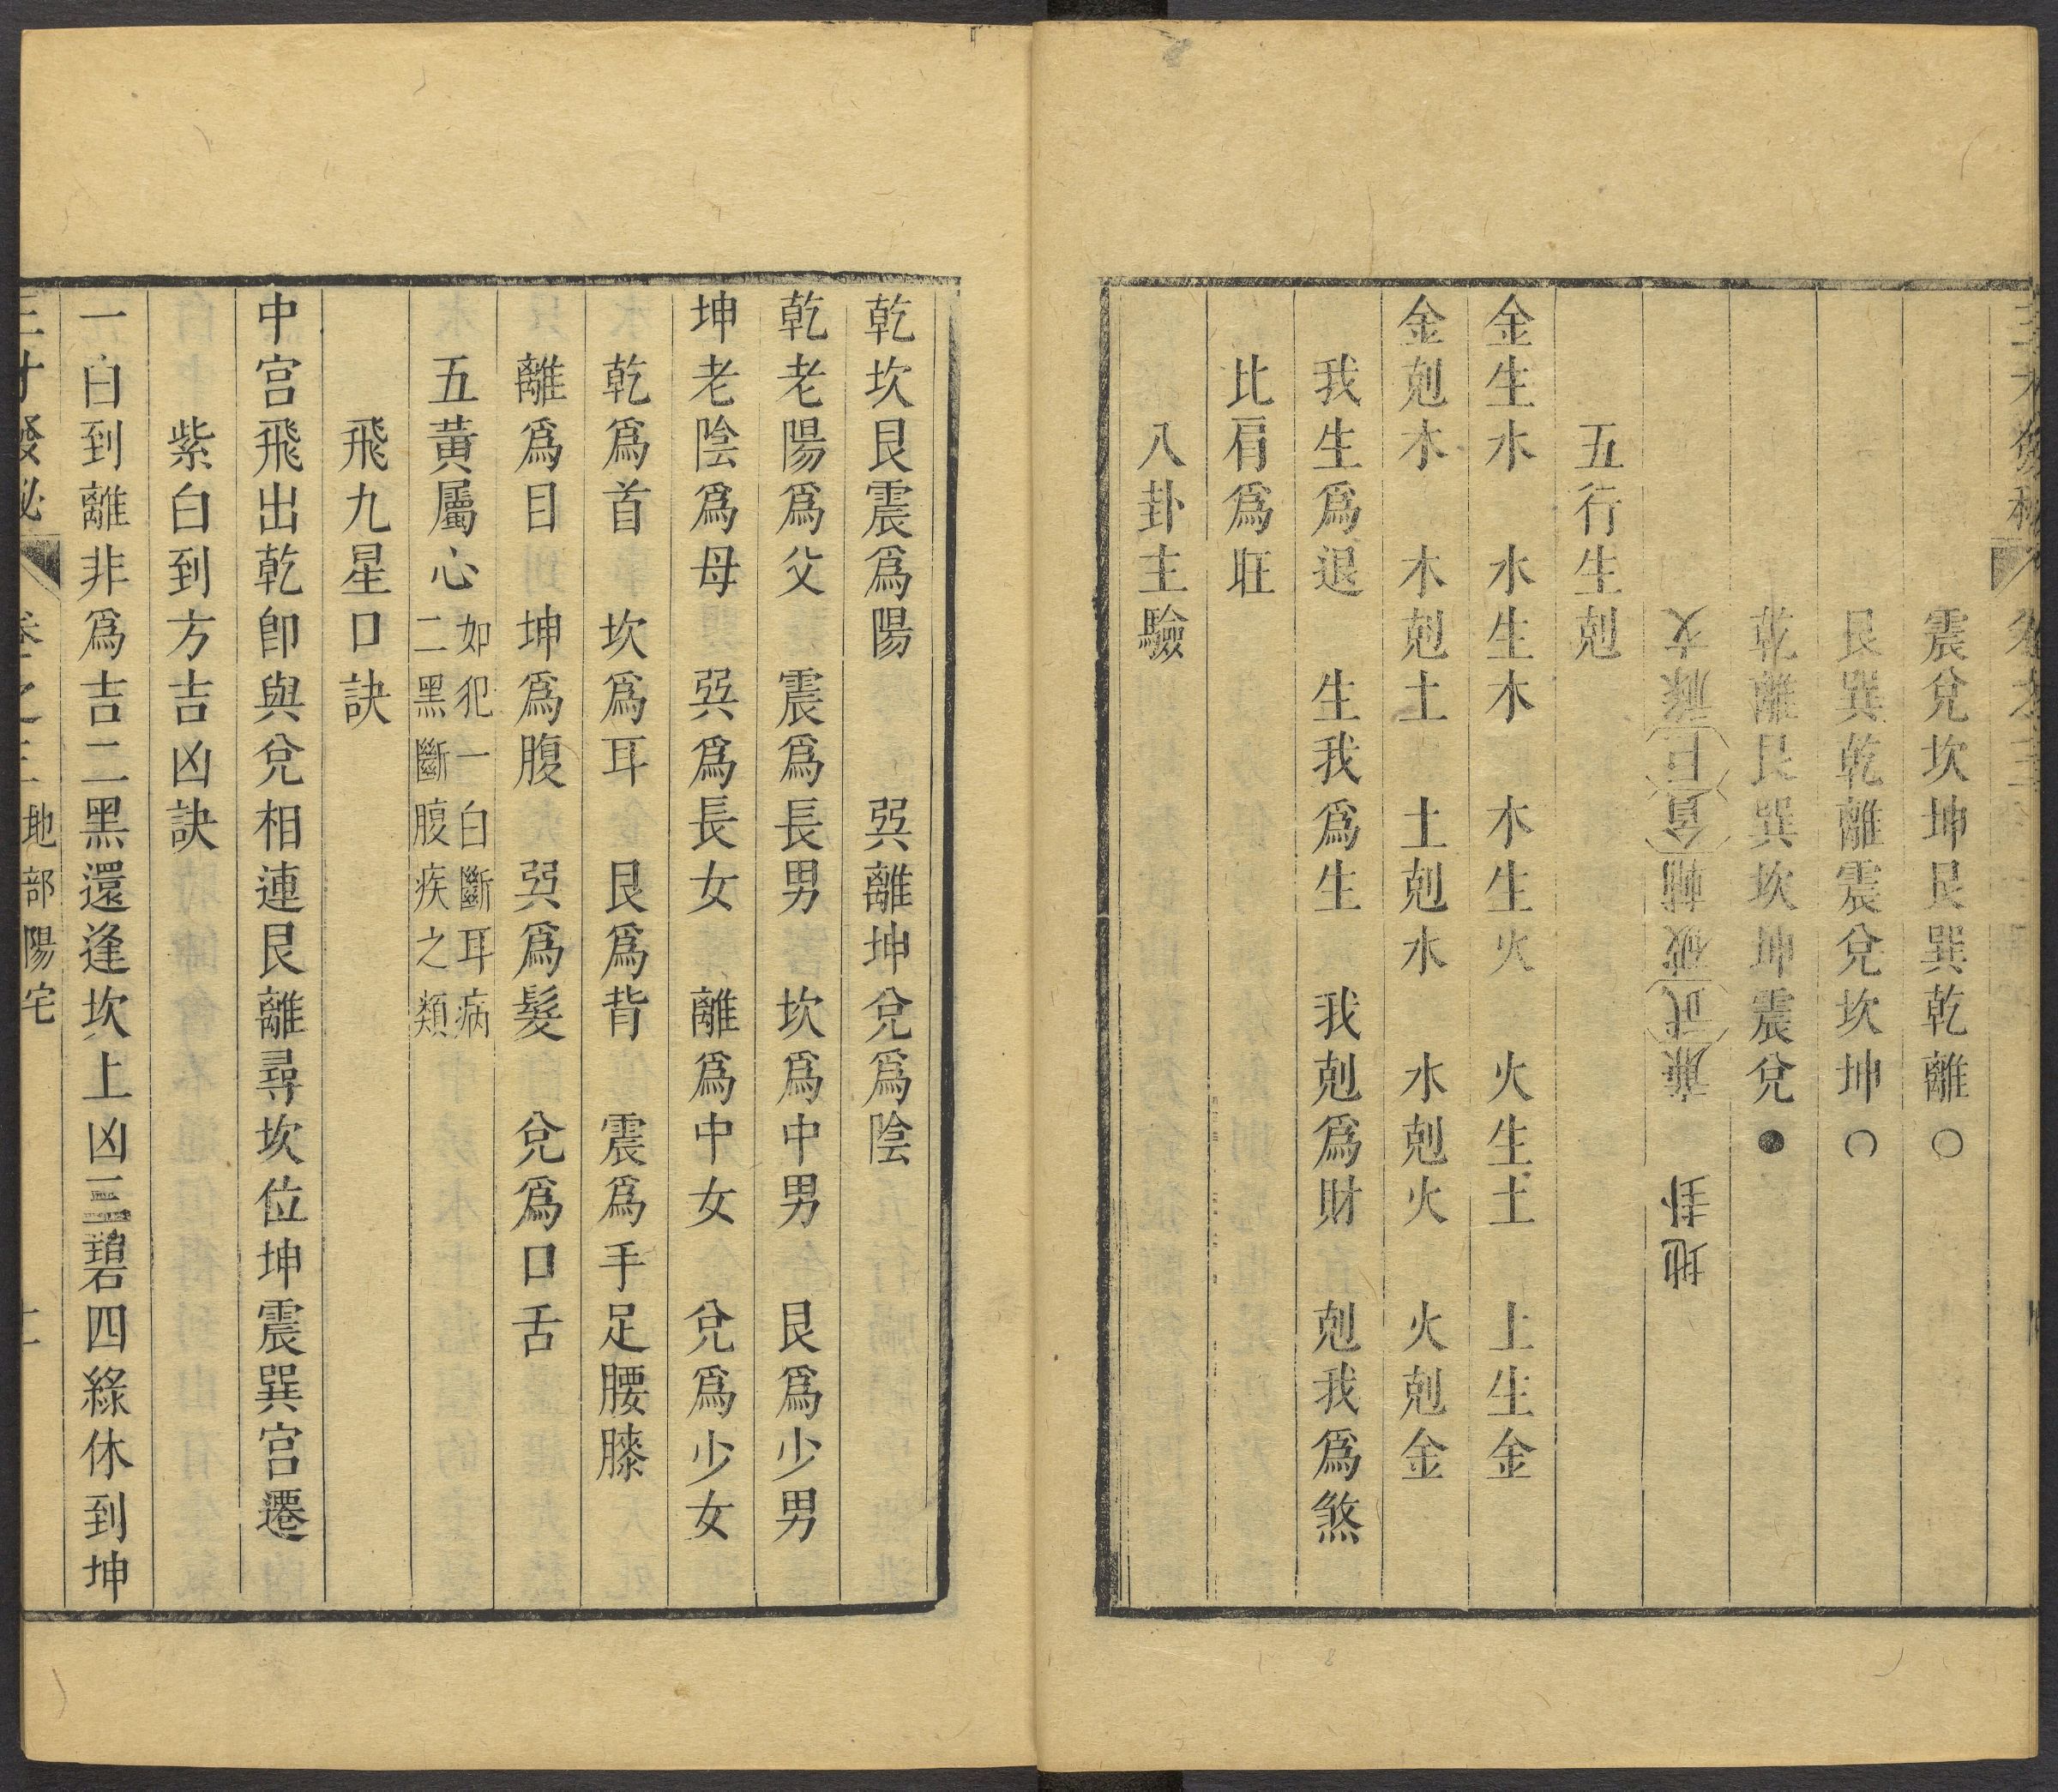 三才發秘 卷之三
震兌坎坤艮巽乾離○
艮巽乾離震兌坎坤○
乾離艮巽坎坤震兌●
地卦 廉武破輔貪巨祿文
五行生剋
金生水 水生木 木生火 火生土 土生金
金剋木 木剋土 土剋水 水剋火 火剋金
我生爲退 生我爲生 我剋爲財 剋我爲煞
比肩爲旺
八卦主驗
乾坎艮震爲陽 巽離坤兌爲陰
乾老陽爲父 震爲長男 坎爲中男 艮爲少男
坤老陰爲母 巽爲長女 離爲中女 兌爲少女
乾爲首 坎爲耳 艮爲背 震爲手足腰膝
離爲目 坤爲腹 巽爲髮 兌爲口舌
五黃屬心 如犯一白斷耳病二黑斷腹疾之類
飛九星口訣
中宮飛出乾卽與兌相連艮離尋坎位坤震巽宮遷
紫白到方吉凶訣
一白到離非爲吉二黑還逢坎上凶三碧四綠休到坤
三才發秘 卷之三 地部陽宅